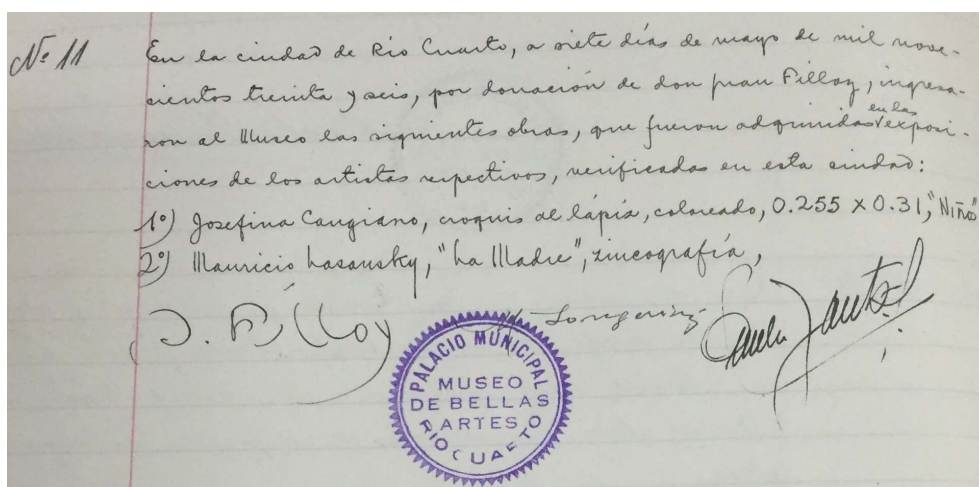 Nº 11 En la ciudad de Río Cuarto, a siete días de mayo de mil nove-
cientos treinta y seis, por donación de don Juan Filloy, ingresa-
ron al Museo las siguientes obras, que fueron adquiridas en las exposi-
ciones de los artistas respectivos, verificadas en esta ciudad:
1º) Josefina Cangiano, croquis al lápiz, coloreado, 0.255 x 0.31, "Niños"
2º) Mauricio Lasansky, "La Madre", zincografía,
J. Filloy
PALACIO MUNICIPAL
MUSEO
DE BELLAS
ARTES
RIO CUARTO